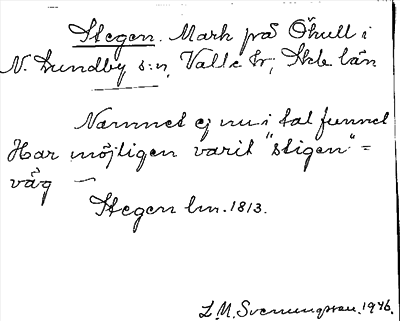 Stegen. Mark på Öhult i
N. Lundby s:n, Valle hr; Skb. län
Namnet ej nu i tal funnet
Har möjligen varit "stigen" =
väg —
Stegen lm. 1813.
L. M. Svenungsson. 1946.